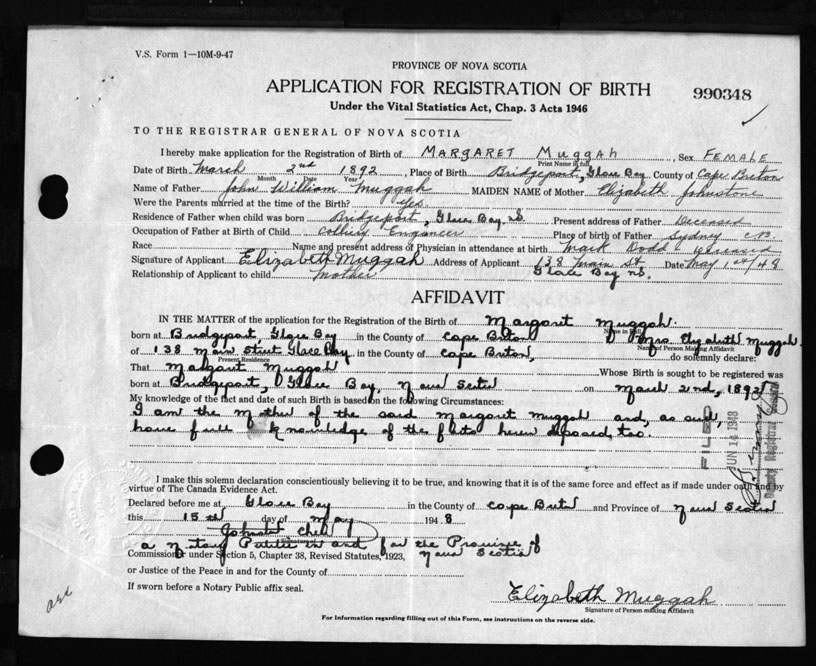 V.S. Form 1—10M-9-47
PROVINCE OF NOVA SCOTIA
APPLICATION FOR REGISTRATION OF BIRTH
990348
Under the Vital Statistics Act, Chap. 3 Acts 1946
TO THE REGISTRAR GENERAL OF NOVA SCOTIA
I hereby make application for the Registration of Birth of MARGARET Muggah, Sex FEMALE
Print Name in full
Date of Birth March 2nd 1892, Place of Birth Bridgeport, Glace Bay County of Cape Breton
Month Date Year
Name of Father John William Muggah MAIDEN NAME of Mother Elizabeth Johnstone
Were the Parents married at the time of Birth? Yes
Residence of Father when child was born Bridgeport, Glace Bay, N.S. Present address of Father Deceased
Occupation of Father at Birth of Child Colliery Engineer Place of birth of Father Sydney CB
Race Name and present address of Physician in attendance at birth Mark Dodd Deceased
Signature of Applicant Elizabeth Muggah Address of Applicant 138 Main St. Date May 1st/48
Relationship of Applicant to child mother Glace Bay N.S.
AFFIDAVIT
IN THE MATTER of the application for the Registration of the Birth of Margaret Muggah
Name in full
born at Bridgeport, Glace Bay in the County of Cape Breton I Mrs Elizabeth Muggah
Name of Person Making Affidavit
of 138 Main Street Glace Bay, in the County of Cape Breton, do solemnly declare:
Present Residence
That Margaret Muggah Whose Birth is sought to be registered was
born at Bridgeport, Glace Bay, Nova Scotia on March 2nd, 1892
My knowledge of the fact and date of such Birth is based on the following Circumstances:
I am the Mother of the said Margaret Muggah and, as such,
have full knowledge of the facts herein deposed, too.
FILED
JUN 14 1948
Deputy Registrar General
I make this solemn declaration conscientiously believing it to be true, and knowing that it is of the same force and effect as if made under oath and by
virtue of The Canada Evidence Act.
Declared before me at Glace Bay in the County of Cape Breton and Province of Nova Scotia
this 15th day of May 1948
a Notary Public in and for the Province of
Commissioner under Section 5, Chapter 38, Revised Statutes, 1923, Nova Scotia
or Justice of the Peace in and for the County of
If sworn before a Notary Public affix seal.
Elizabeth Muggah
Signature of Person making Affidavit
For Information regarding filling out of this Form, see instructions on the reverse side.